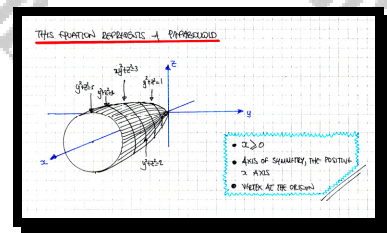 THIS EQUATION REPRESENTS A PARABOLOID
z
y²+z²=3
y²+z²=1
y
y²+z²=2
x
• x⩾0
• AXIS OF SYMMETRY, THE POSITIVE
x AXIS
• VERTEX AT THE ORIGIN